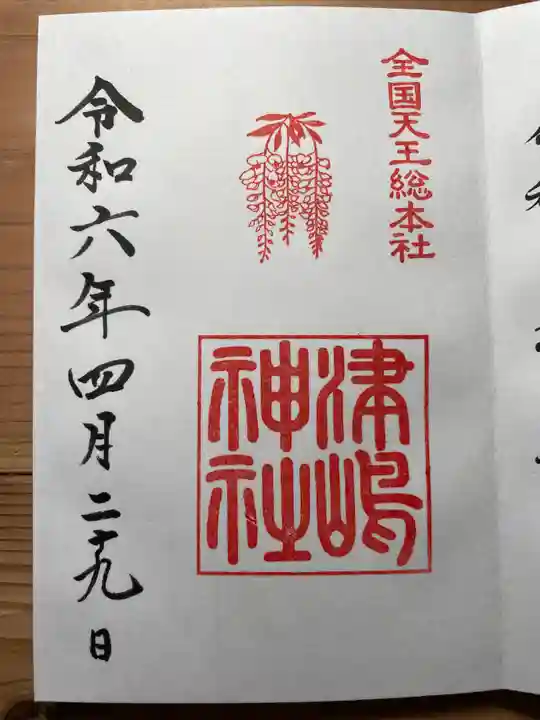 全国天王総本社
津嶋
神社
令和六年四月二十九日